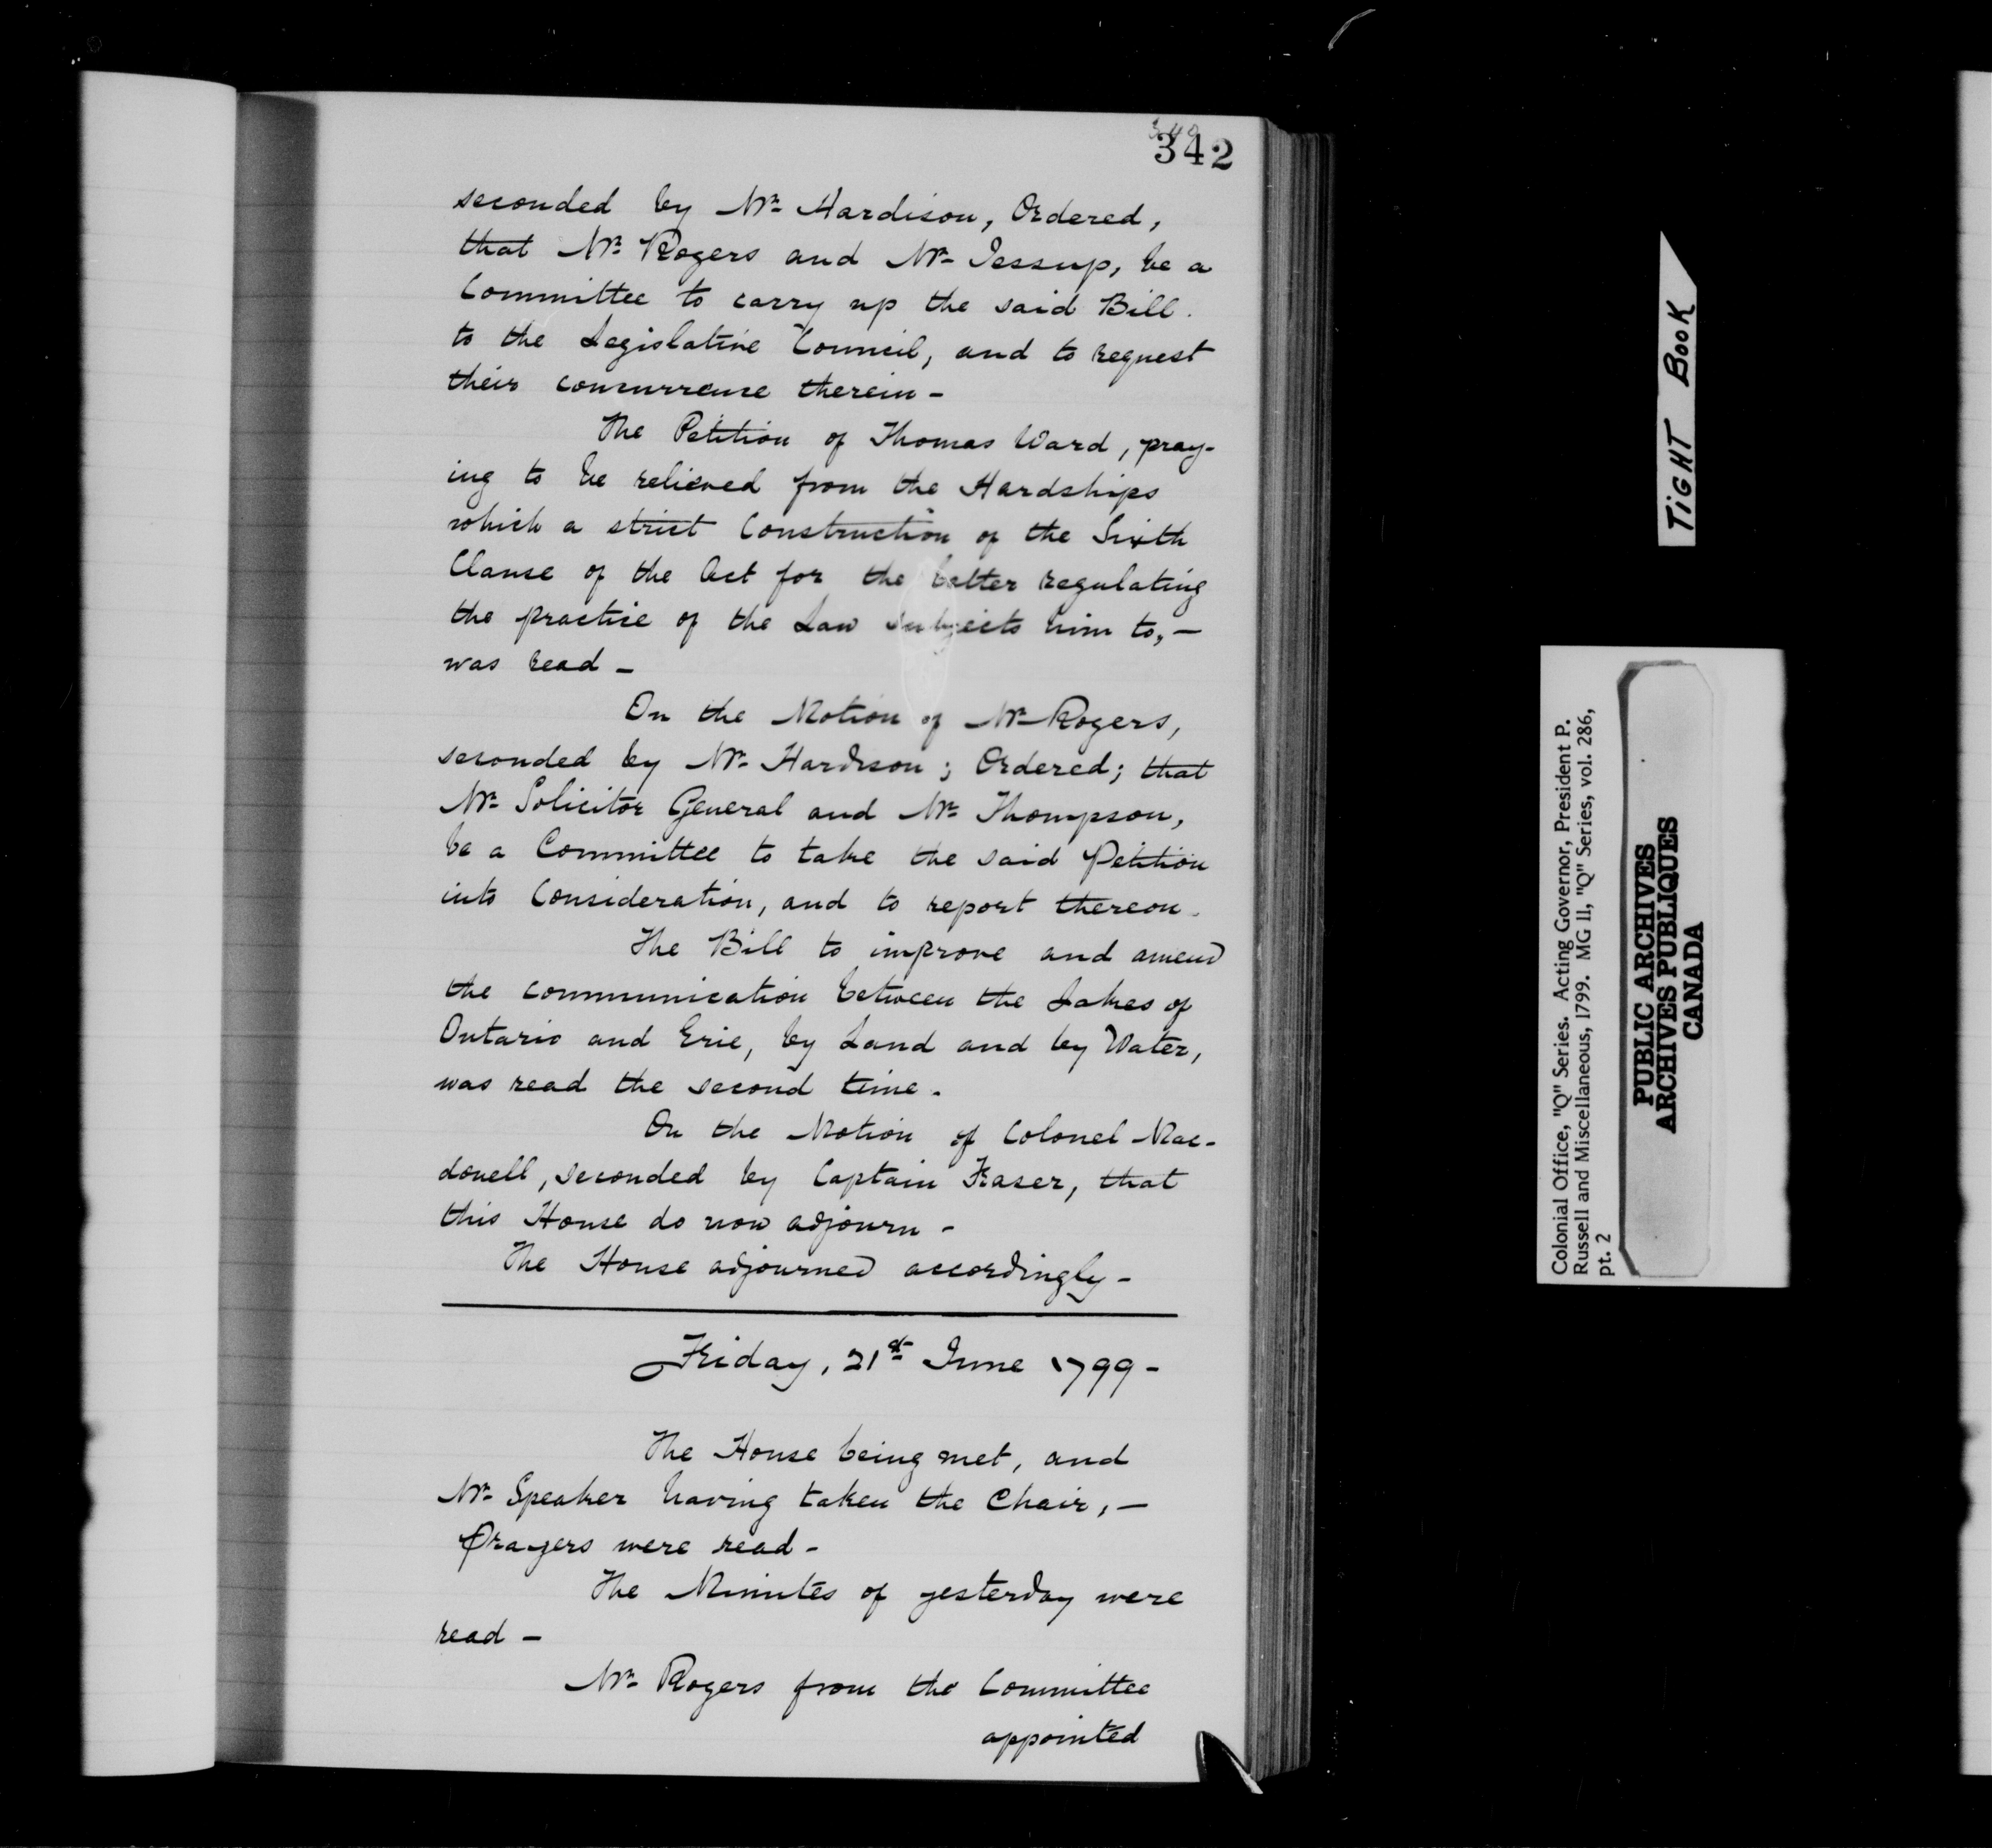 342
seconded by Mr. Hardison, Ordered,
that Mr. Rogers and Mr. Jessup, be a
Committee to carry up the said Bill.
to the Legislative Council, and to request
their concurrence therein -
The Petition of Thomas Ward, pray-
ing to be relieved from the Hardships
which a strict Construction of the Sixth
Clause of the Act for the better regulating
the practice of the Law subjects him to, -
was read -
On the Motion of Mr. Rogers,
seconded by Mr. Hardison; Ordered; that
Mr. Solicitor General and Mr. Thompson,
be a Committee to take the said Petition
into Consideration, and to report thereon.
The Bill to improve and amend
the communication between the Lakes of
Ontario and Erie, by Land and by Water,
was read the second time.
On the Motion of Colonel Mac-
donell, seconded by Captain Fraser, that
this House do now adjourn -
The House adjourned accordingly -
Friday, 21st June 1799 -
The House being met, and
Mr. Speaker having taken the Chair, -
Prayers were read -
The Minutes of yesterday were
read -
Mr. Rogers from the Committee
appointed
TIGHT BOOK
Colonial Office, "Q" Series. Acting Governor, President P.
Russell and Miscellaneous, 1799. MG 11, "Q" Series, vol. 286,
pt. 2
PUBLIC ARCHIVES
ARCHIVES PUBLIQUES
CANADA